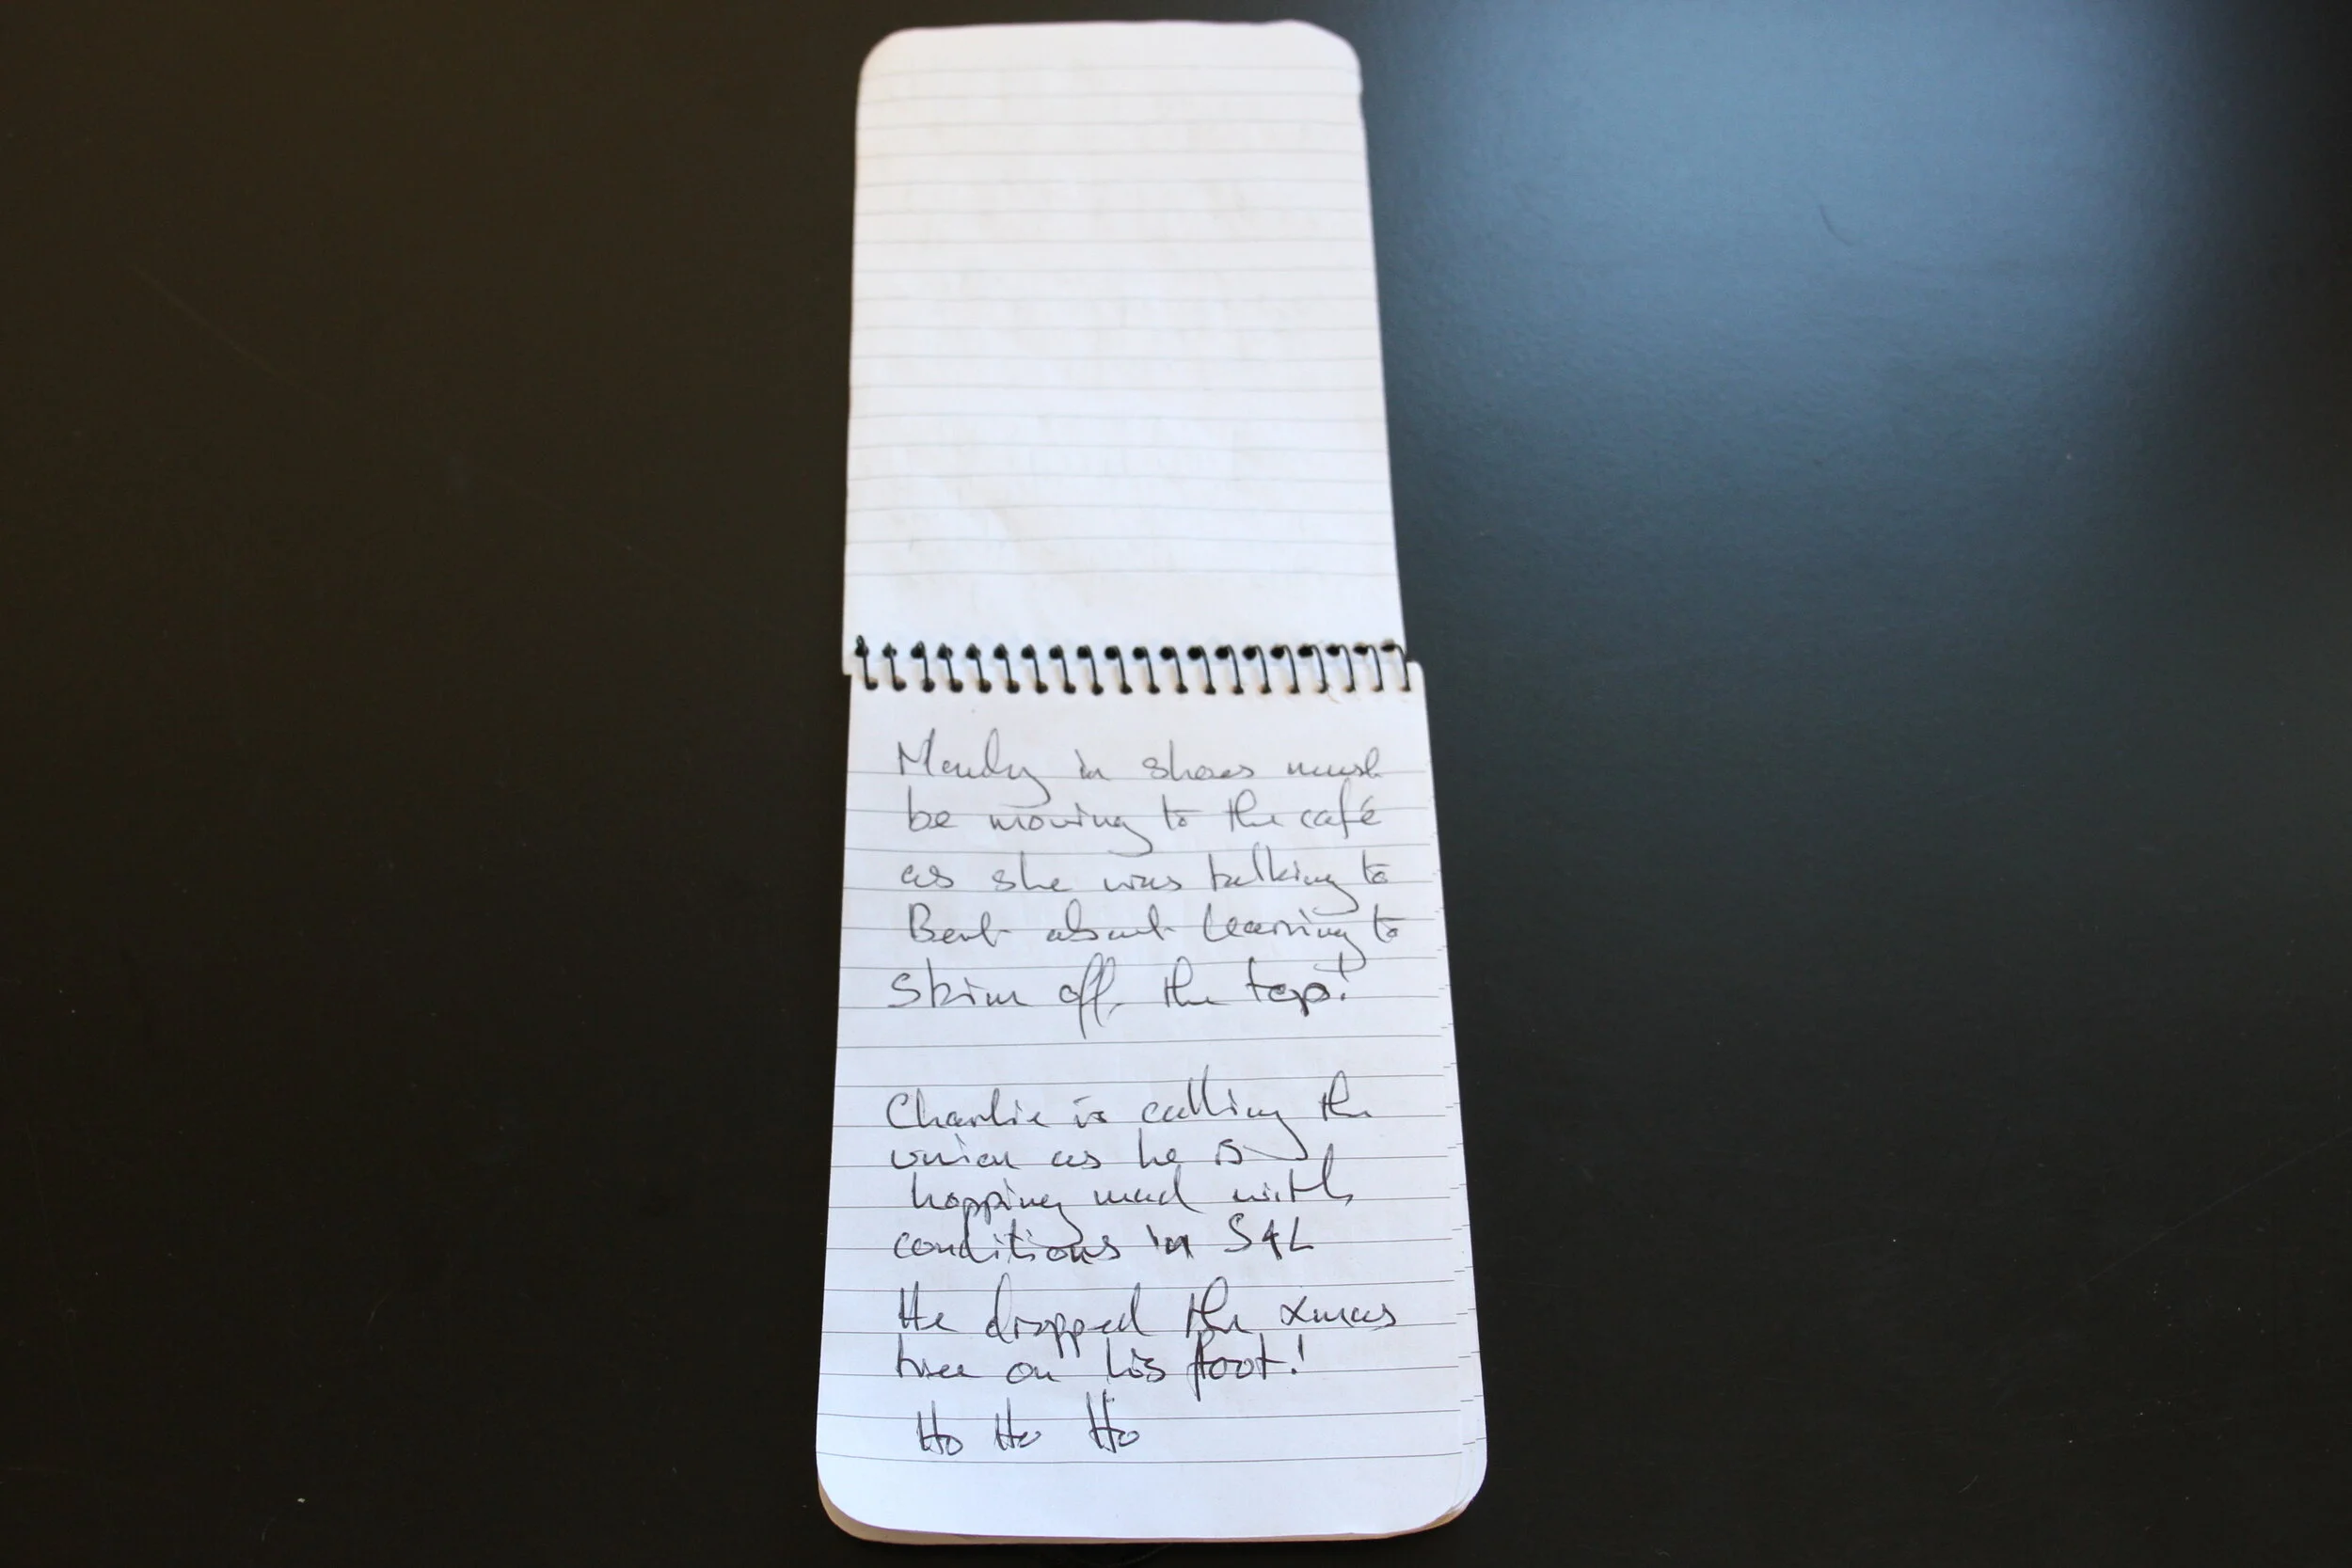 Mandy in shoes must
be moving to the café
as she was talking to
Bert about learning to
skim off the top!
Charlie is calling the
union as he is
hopping mad with
conditions in S&L
He dropped the xmas
tree on his foot!
Ho Ho Ho